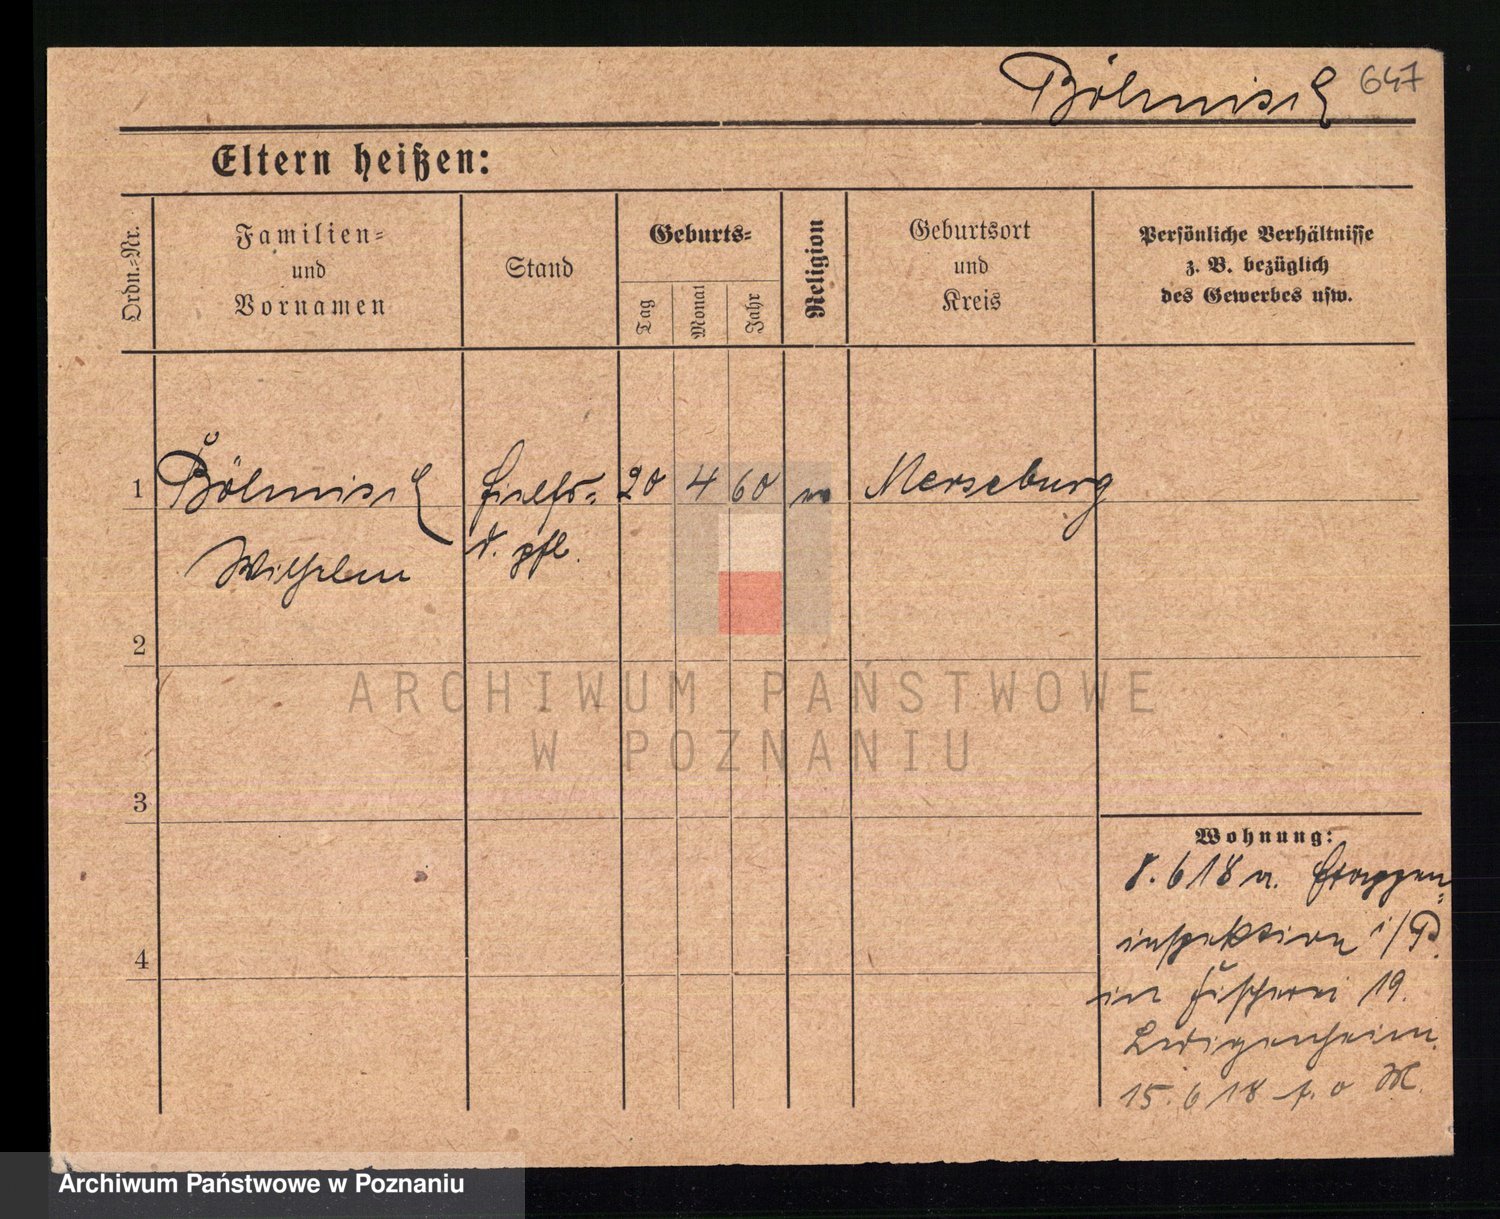 Böhmisch 647
Eltern heißen:
Ordn.-Nr.
Familien-
und
Vornamen
Stand
Geburts-
Tag
Monat
Jahr
Religion
Geburtsort
und
Kreis
Persönliche Verhältnisse
z. B. bezüglich
des Gewerbes usw.
1 Böhmisch 20 4 60 Merseburg
Wilhelm
2
3
4
ARCHIWUM PAŃSTWOWE
W POZNANIU
Wohnung:
8. 6 18 a. Etappen-
inspektion i/P.
in Fischerei 19.
Ledigenheim.
15. 6 18
Archiwum Państwowe w Poznaniu